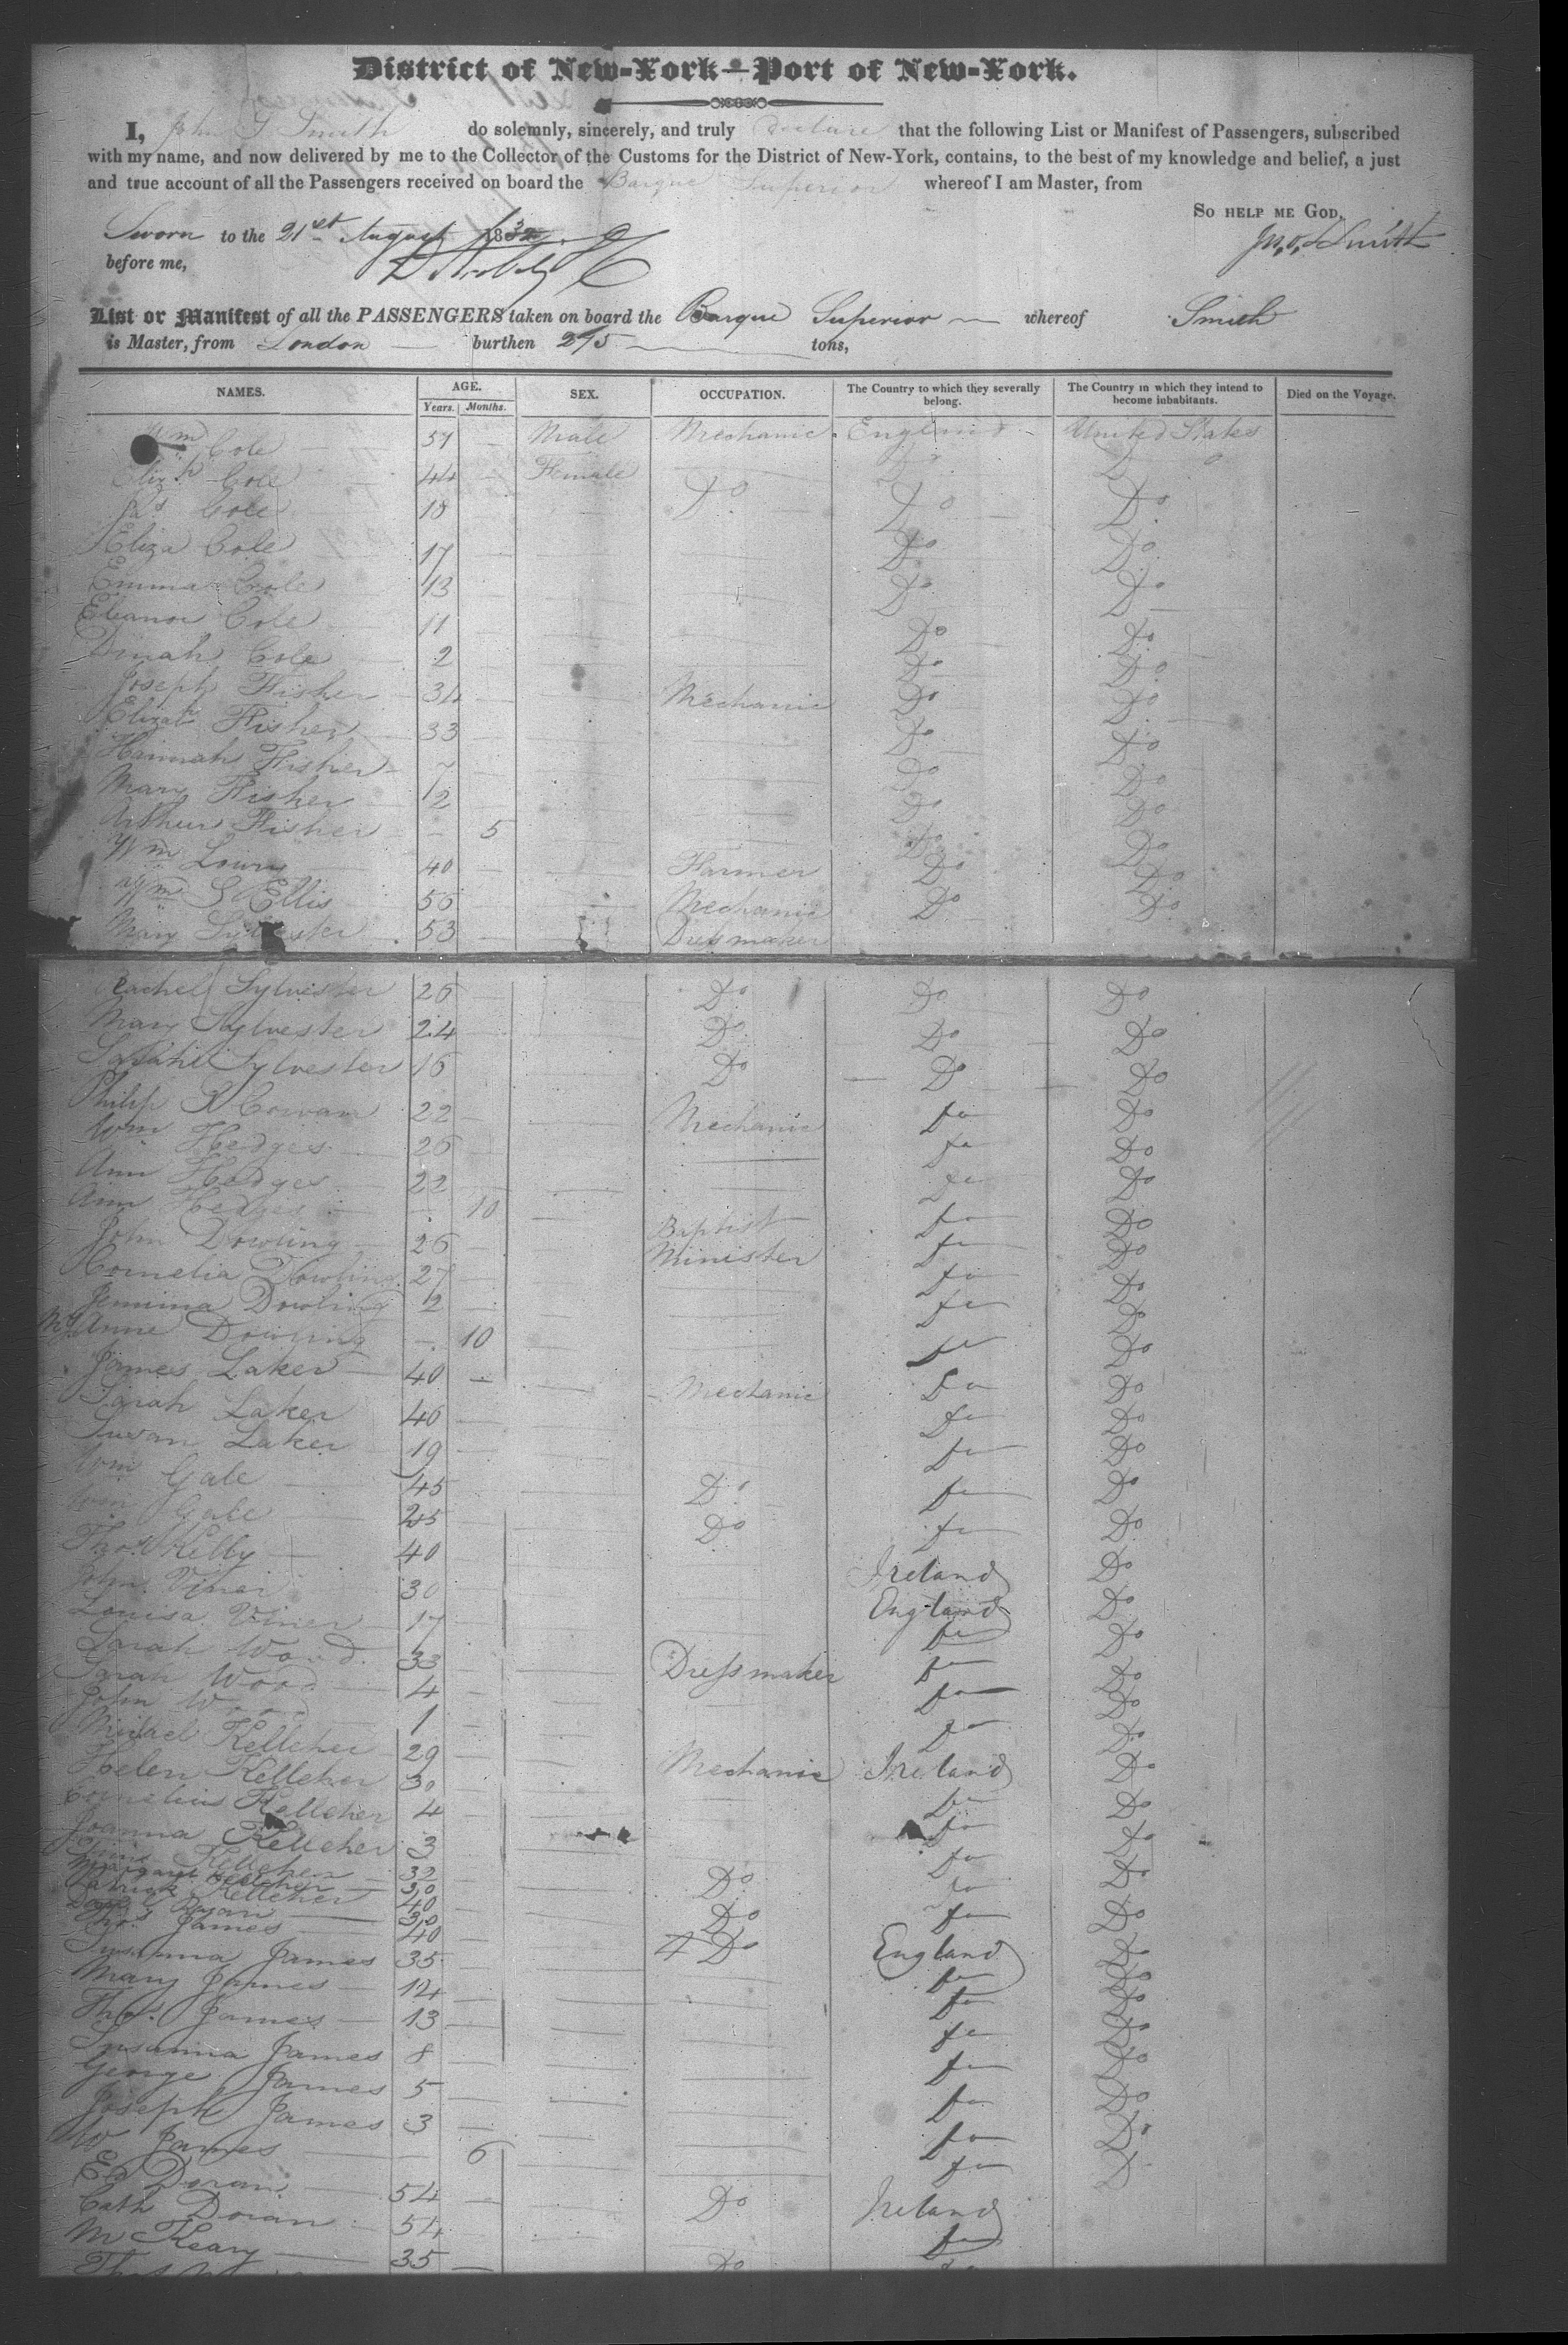 District of New-York—Port of New-York.
I, John G Smith do solemnly, sincerely, and truly declare that the following List or Manifest of Passengers, subscribed
with my name, and now delivered by me to the Collector of the Customs for the District of New-York, contains, to the best of my knowledge and belief, a just
and true account of all the Passengers received on board the Barque Superior whereof I am Master, from
So help me God,
Sworn to the 21st August 1832 Jno. Smith
before me,
List or Manifest of all the PASSENGERS taken on board the Barque Superior — whereof Smith
is Master, from London — burthen 275 — tons,
NAMES. AGE. SEX. OCCUPATION. The Country to which they severally belong. The Country in which they intend to become inhabitants. Died on the Voyage.
Years. Months.
Wm Cole 51 Male Mechanic England United States
Eliz.h Cole 44 Female Do Do
Jas Cole 18 Do Do Do
Eliza Cole 17 Do Do
Emma Cole 13 Do Do
Eleanor Cole 11 Do Do
Dinah Cole 2 Do Do
Joseph Fisher 34 Mechanic Do Do
Elizath Fisher 33 Do Do
Hannah Fisher 7 Do Do
Mary Fisher 2 Do Do
Arthur Fisher — 5 Do Do
Wm Lowry 40 Farmer Do Do
Wm S Ellis 56 Mechanic Do Do
Mary Sylvester 53 Dressmaker
Rachel Sylvester 26 Do Do Do
Mary Sylvester 24 Do Do Do
Sarah Sylvester 16 Do Do Do
Philip R Cowan 22 Mechanic Do Do
Wm Hedges 26 Do Do
Ann Hedges 22 Do Do
Ann Hedges — 10 Do Do
John Dowling 26 Baptist Minister Do Do
Cornelia Dowling 27 Do Do
Jemima Dowling 2 Do Do
My Anne Dowling — 10 Do Do
James Laker 40 Mechanic Do Do
Sarah Laker 46 Do Do
Susan Laker 19 Do Do
Wm Gale 45 Do Do Do
Wm Gale 25 Do Do Do
Thos Kelly 40 Ireland Do
John Viner 30 England Do
Louisa Viner 17 Do Do
Sarah Wood 33 Dressmaker Do Do
Sarah Wood 4 Do Do
John Wood 1 Do Do
Michael Kelleher 29 Mechanic Ireland Do
Helen Kelleher 30 Do Do
Cornelius Kelleher 4 Do Do
Joanna Kelleher 3 Do Do
Kelleher 32
Margaret Kelleher 30 Do Do
Patrick Kelleher 40
Ryan 30 Do Do Do
Thos James 40 Do England Do
Susanna James 35 Do Do
Mary James 14 Do Do
Thos. James 13 Do Do
Susanna James 8 Do Do
George James 5 Do Do
Joseph James 3 Do Do
W James — 6 Do Do
Ed Doran 54 Do Ireland
Cath Doran 54 Do
M Keary 35 Do